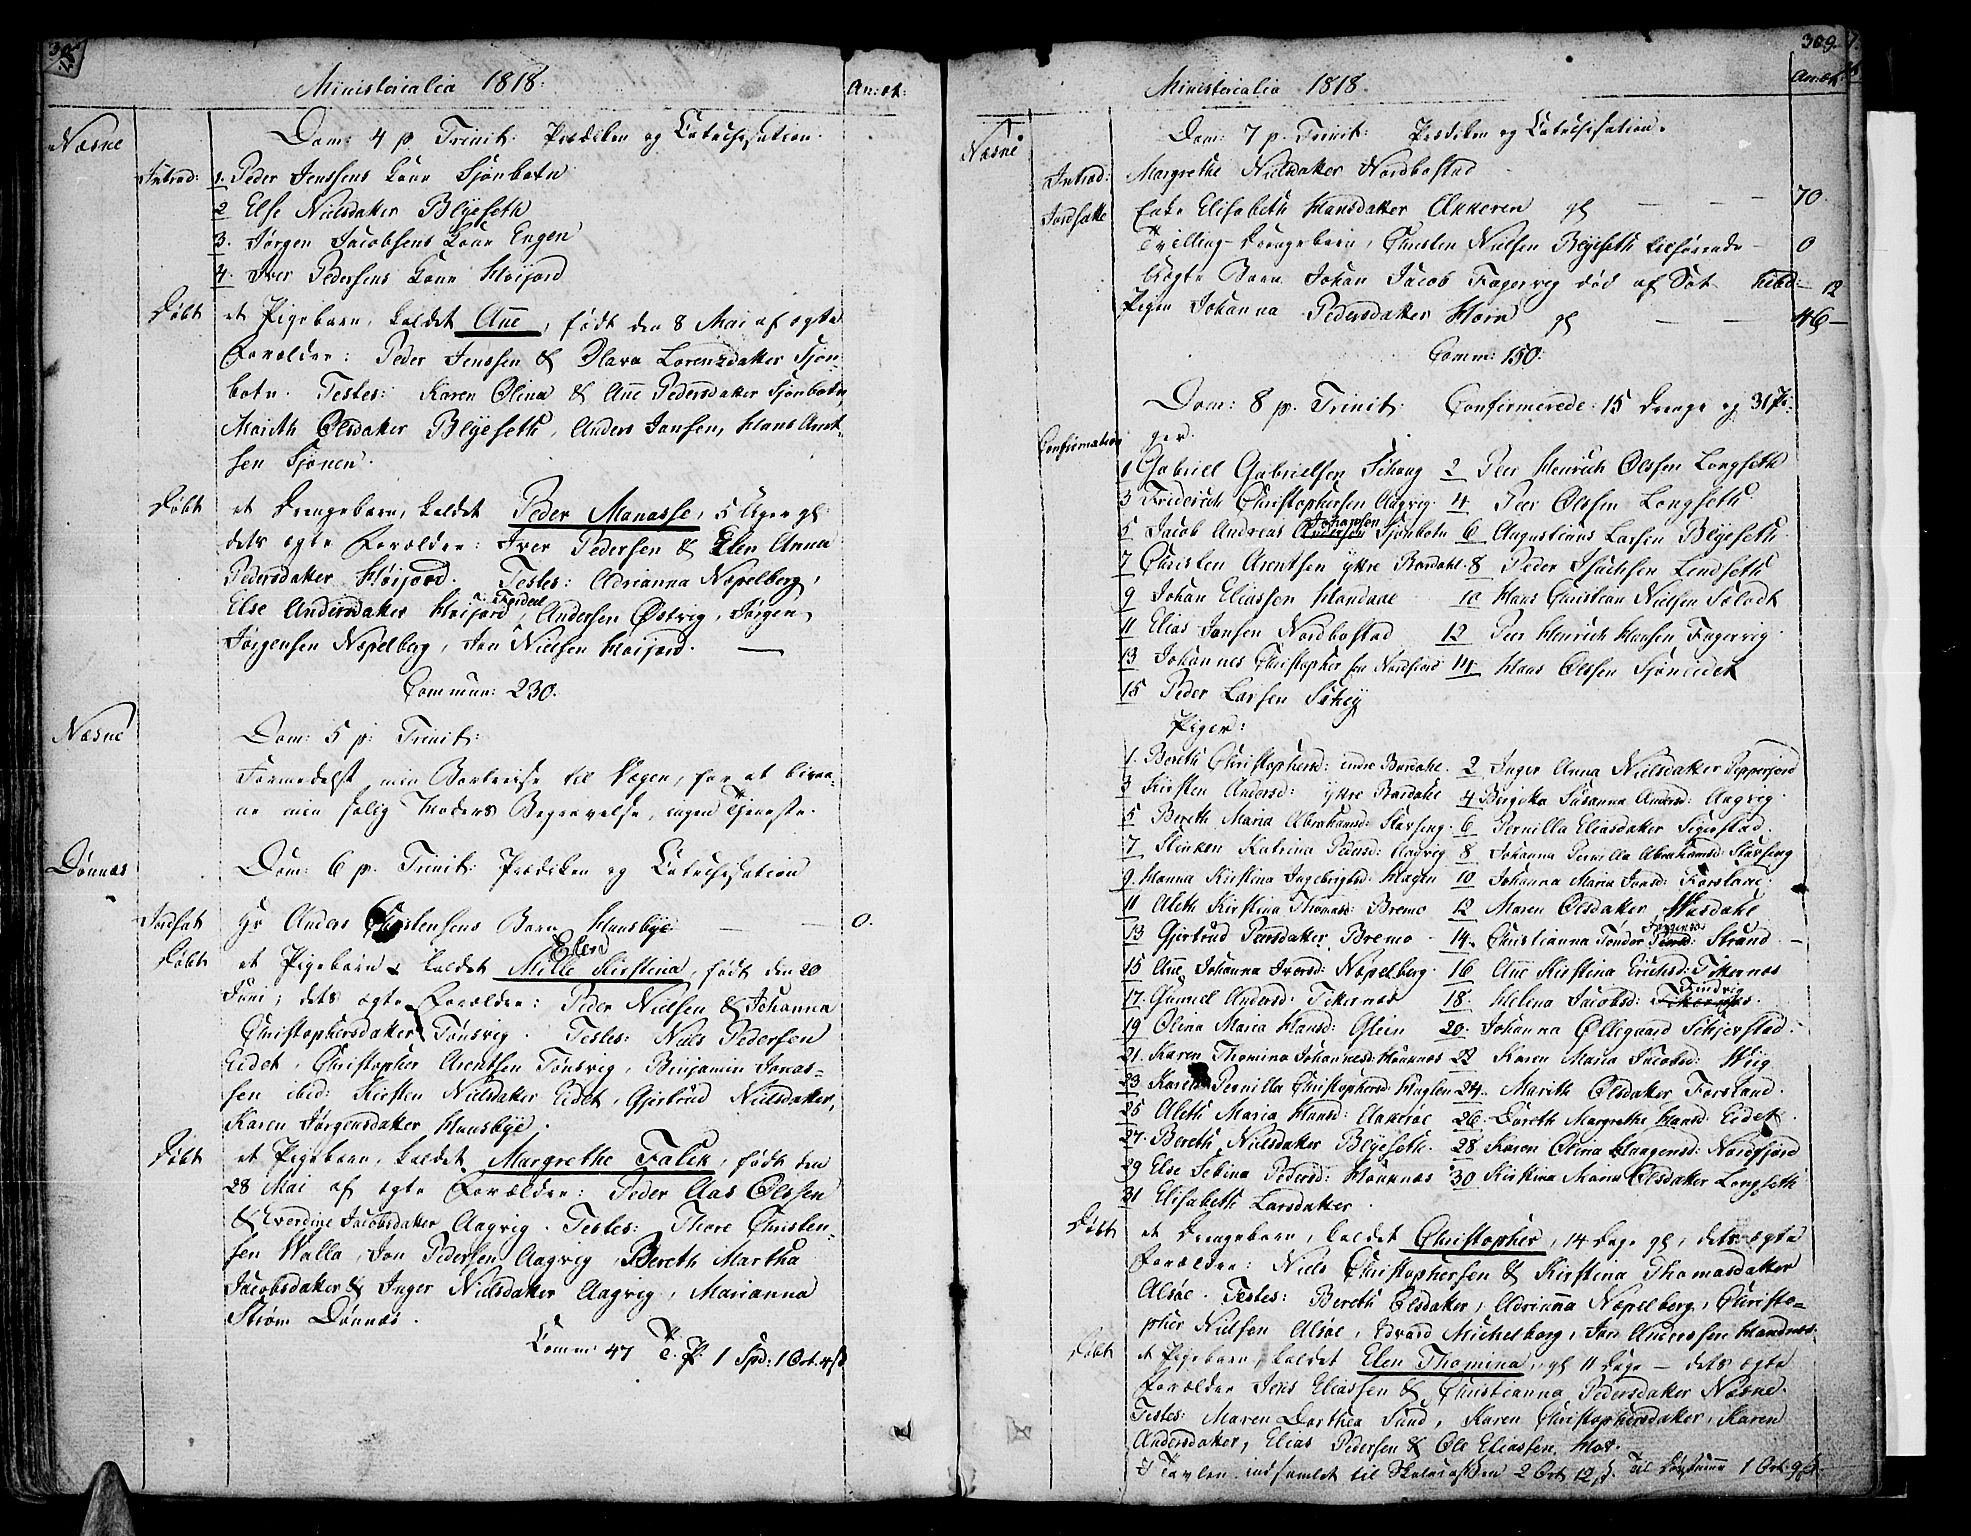 Ministerialia 1818.
An: et:
Næsne
Dom: 4 p. Trinit: Prædiken og Catechisation.
Introd: 1. Peder Jenssens Kone Sjonbotn
2 Else Nielsdatter Blyeseth
3. Jørgen Jacobsens Kone Engen
4. Iver Pedersens Kone Høifjord
Døbt et Pigebarn, kaldet Ane, født den 8 Mai af ægte
Forældre: Peder Jenssen & Olava Lorenzdatter Sjon-
botn. Testes: Karen Olina & Ane Pedersdatter Sjonbotn,
Marith Olsdatter Blyeseth, Anders Jansen, Hans Arnt-
sen Sjonen.
Døbt et Drengebarn, kaldet Peder Manasse, 5 Uger gl:
dets ægte Forældre: Iver Pedersen & Elen Anna
Pedersdatter Høifjord. Testes: Adrianna Næpelberg,
Else Andersdatter Høifjord, Andersen Østvig, Jørgen
Jørgensen Næpelberg, Jon Nielsen Høifjord.
Commun: 230.
Næsne
Dom: 5 p: Trinit:
Formedelst min Bortreise til Vægen, for at bivaa-
ne min salig Moders Begravelse, ingen Tjeneste.
Dønnæs
Dom: 6 p. Trinit: Prædiken og Catechisation
Jordfæst Gr Anders Christensens Barn Huusbye — — 0.
Elen
Døbt et Pigebarn kaldet Mille Kirstina, født den 20
Juni; dets ægte Forældre: Peder Nielsen & Johanna
Christophersdatter Tønsvig. Testes: Niels Pedersen
Eidet, Christopher Arentsen Tønsvig, Binjamin Jonas-
sen ibid: Kirsten Nielsdatter Eidet, Gjertrud Nielsdatter,
Karen Jørgensdatter Huusbye.
Døbt et Pigebarn, kaldet Margrethe Falck, født den
28 Mai af ægte Forældre: Peder Aas Olssen
& Everdine Jacobsdatter Aagvig. Testes: Thore Christen-
sen Walla, Jon Pedersen Aagvig, Bereth Martha
Jacobsdatter & Inger Nielsdatter Aagvig, Marianna
Strøm Dønnæs.
Comm: 47 T. P. 1 Spd: 1 Ort.
309
Ministerialia 1818.
An: et
Næsne
Dom: 7 p. Trinit: Prædiken og Catechisation.
Introd: Margrethe Nielsdatter Nordbostad
Jordfæste Enke Elisabeth Hansdatter Akkeren gl — — — 70.
Tvilling-Drengebarn, Christen Nielsen Blyeseth tilhørende — 0
Uægte Barn Johan Jacob Fagervig død af Sot — 12
Pigen Johanna Pedersdatter Horn gl — — 46 —
Comm: 150.
Dom: 8 p. Trinit: Confirmerede: 15 Drenge og 31 Pi-
Confirmation ger.
1 Gabriel Gabrielsen Schaug 2 Peer Henrich Olssen Longseth
3 Friderich Christophersen Aagvig 4 Peer Olssen Longseth.
Johansen
5 Jacob Andreas Andersen Sjonbotn 6 Augustinus Larsen Blyeseth.
7 Christen Arentsen yttre Bardahl 8 Peder Isachsen Lendseth
9 Johan Eliassen Handaae 10 Hans Christian Nielsen
11 Elias Jonsen Nordbostad 12 Peer Henrich Hansen Fagervig.
13 Johannes Christophersen Nordfjord 14 Hans Olssen Sjoneidet
15 Peder Larsen
Piger:
1. Bereth Christophersd: indre Bardahl. 2 Inger Anna Nielsdatter Pepperjord
3 Kirsten Andersd: yttre Bardahl 4 Birgitha Susanna Andersd: Aagvig.
5 Bereth Maria Abrahamsd: Slavseng 6 Pernilla Eliasdatter
7 Stinken Katrina Pedersd: Aagvig 8 Johanna Pernilla Abrahamsd: Slavseng
9. Hanna Kirstina Ingebrigtsd: Hagen 10 Johanna Maria Jonsd: Forsland.
11 Aleth Kirstina Thomasd: Bremo 12 Maren Olsdatter Wasdahl
13 Gjertrud Peersdatter Bremo 14. Christianna Tonder Strand. —
15 Ane Johanna Iversd: Næpelberg. 16 Ane Kirstina Erichsd: Tikernæs
Tindvig
17. Gunniel Andersd: Tikernæs 18. Helena Jacobsd: Tikernæs.
19 Olina Maria Hansd: Glein 20. Johanna Øllegaard Schjerstad.
21. Karen Thomina Johannesd: Houknæs 22 Karen Maria Jacobsd: Wiig
23 Karen Pernilla Christophersd: Huglen 24. Marith Olsdatter Forsland.
25 Aleth Maria Hansd: 26. Dorethe Margrethe Hansd: Eidet.
27. Bereth Nielsdatter Blyeseth. 28 Karen Olina Haagensd: Nordfjord
29 Else Sebina Pedersd: Houknæs 30 Kirstina Maria Olsdatter Longseth
31 Elisabeth Larsdatter.
Døbt et Drengebarn, kaldet Christopher, 14 Dage gl, dets ægte
Forældre: Niels Christophersen & Kirstina Thomasdatter
Alsøe. Testes: Bereth Olsdatter, Adrianna Næpelberg, Christo-
pher Nielsen Alsøe, Edvard Michelborg, Jon Anderssen Handnæs.
Døbt et Pigebarn, kaldet Elen Thomina, gl 11 Dage — dets ægte
Forældre Jens Eliassen & Christianna Pedersdatter Næsne.
Testes: Maren Dorthea Sund, Karen Christophersdatter, Karen
Andersdatter, Elias Pedersen & Ole Eliassen
I Tavlen indsamlet til Skolecassen 2 Ort 12 s. Til 1 Ort 9 s.